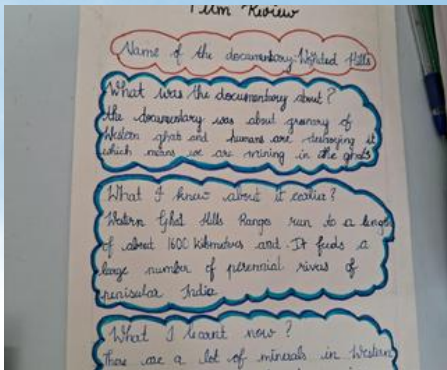 Film Review
Name of the documentary: Wounded Hills
What was the documentary about?
the documentary was about greenary of
Western ghats and humans are destroying it
which means we are mining in the ghats
What I knew about it earlier?
Western Ghat Hills Ranges run to a length
of about 1600 kilometers and . It feeds a
large number of perennial rivers of
penisular India
What I learnt now?
There are a lot of minerals in Western